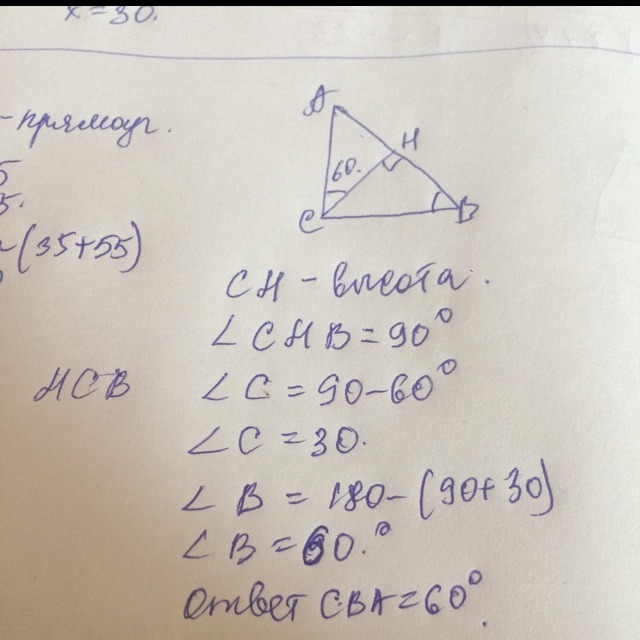 x = 30.
-прямоуг.
5
5.
(35+55)
A
H
60.
C
B
CH - высота.
∠CHB = 90°
HCB ∠C = 90-60°
∠C = 30.
∠B = 180-(90+30)
∠B = 60.°
Ответ CBA = 60°.